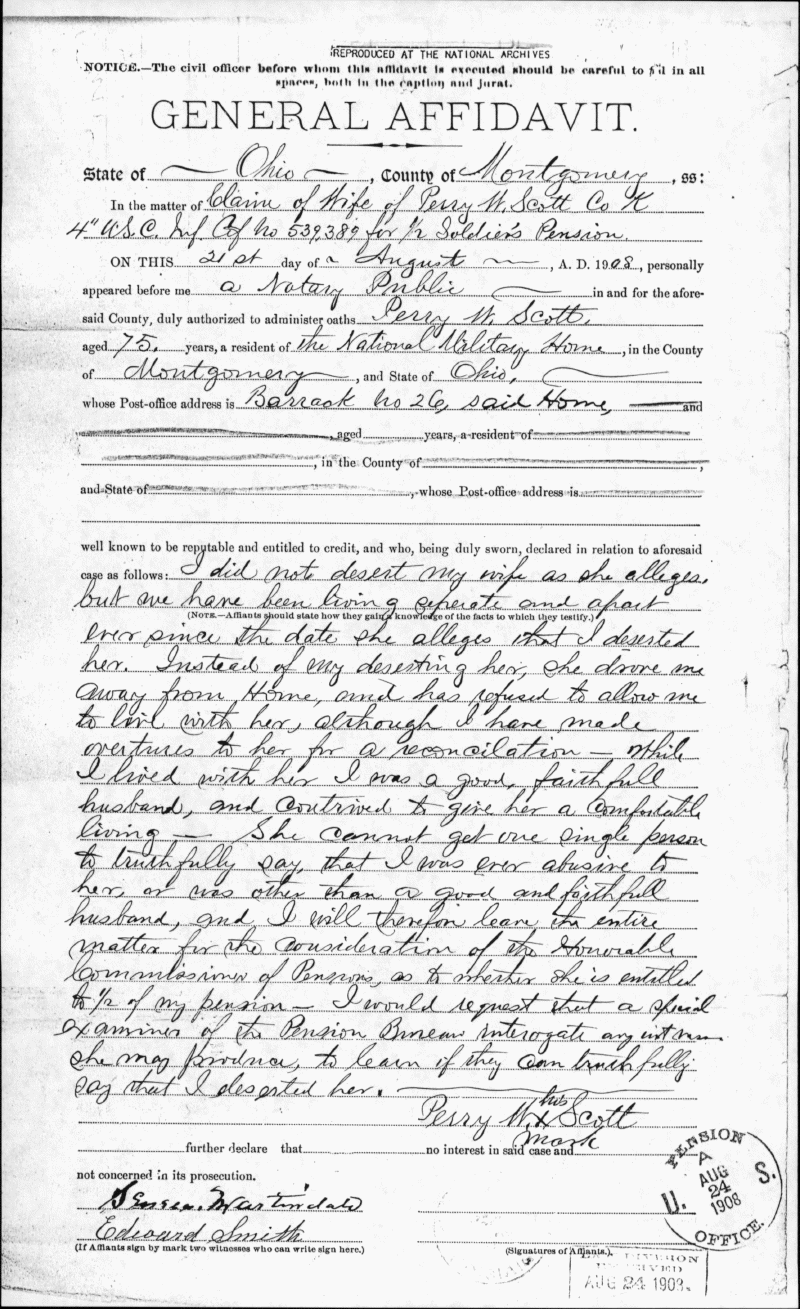 REPRODUCED AT THE NATIONAL ARCHIVES
NOTICE.—The civil officer before whom this affidavit is executed should be careful to fill in all
spaces, both in the caption and jurat.
GENERAL AFFIDAVIT.
State of Ohio, County of Montgomery, ss:
In the matter of Claim of Wife of Perry W. Scott Co K
4" U.S.C. Inf. Ctf No 539,389 for 1/2 Soldier's Pension.
ON THIS 21st day of August, A. D. 1908, personally
appeared before me a Notary Public in and for the afore-
said County, duly authorized to administer oaths Perry W. Scott,
aged 75, years, a resident of the National Military Home, in the County
of Montgomery, and State of Ohio,
whose Post-office address is Barrack No 26, said Home, and
, aged years, a resident of
, in the County of ,
and State of , whose Post-office address is
well known to be reputable and entitled to credit, and who, being duly sworn, declared in relation to aforesaid
case as follows: I did not desert my wife as she alleges,
but we have been living seperate and apart
(NOTE.—Affiants should state how they gain a knowledge of the facts to which they testify.)
ever since the date she alleges that I deserted
her. Instead of my deserting her, she drove me
away from Home, and has refused to allow me
to live with her, although I have made
overtures to her for a reconcilation — while
I lived with her I was a good, faithfull
husband, and contrived to give her a comfortable
living — She cannot get one single person
to truthfully say, that I was ever abusive to
her, or was other than a good and faithfull
husband, and I will therefor leave the entire
matter for the consideration of the Honorable
Commissioner of Pensions, as to whether she is entitled
to 1/2 of my pension — I would request that a special
examiner of the Pension Bureau interogate any
she may produce, to learn if they can truthfully
say that I deserted her.
his
Perry W. X Scott
mark
further declare that no interest in said case and
not concerned in its prosecution.
Martindale
Edward Smith
(If Affiants sign by mark two witnesses who can write sign here.)
(Signatures of Affiants.)
PENSION
A
AUG
24
1908
U. S.
OFFICE.
DIVISION
RECEIVED
AUG 24 1908.